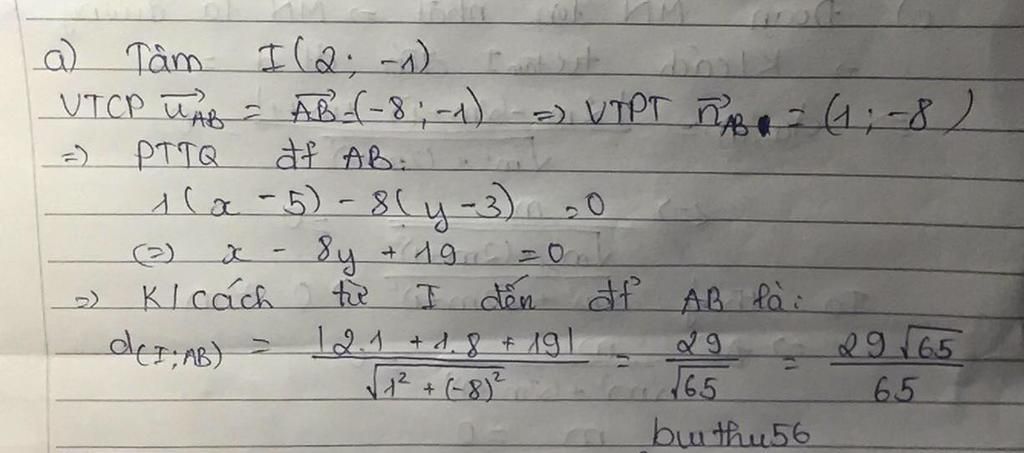 a) Tâm I(2; -1)
VTCP \vec{u}_{AB} = \vec{AB} = (-8; -1) => VTPT \vec{n}_{AB} = (1; -8)
=> PTTQ đt AB:
1(x - 5) - 8(y - 3) = 0
(=) x - 8y + 19 = 0
=> K/cách từ I đến đt AB là:
d(I; AB) = |2.1 + 1.8 + 19| / √(1² + (-8)²) = 29/√65 = 29√65/65
buithu56